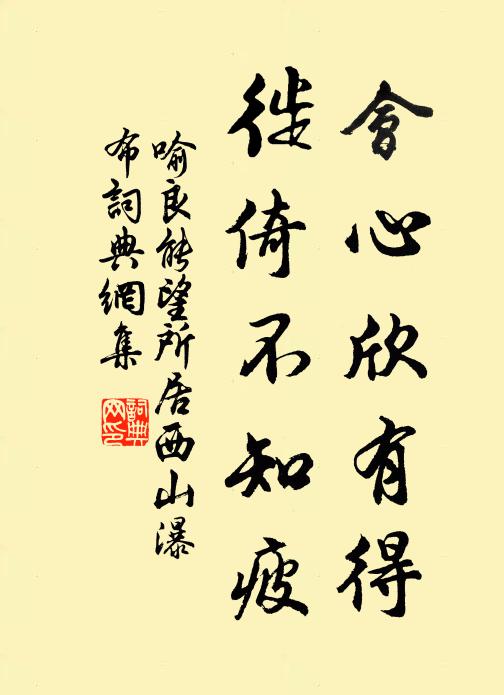 會心欣有得
徙倚不知疲
喻良能望所居西山瀑
布詞典網集
詞典
网印